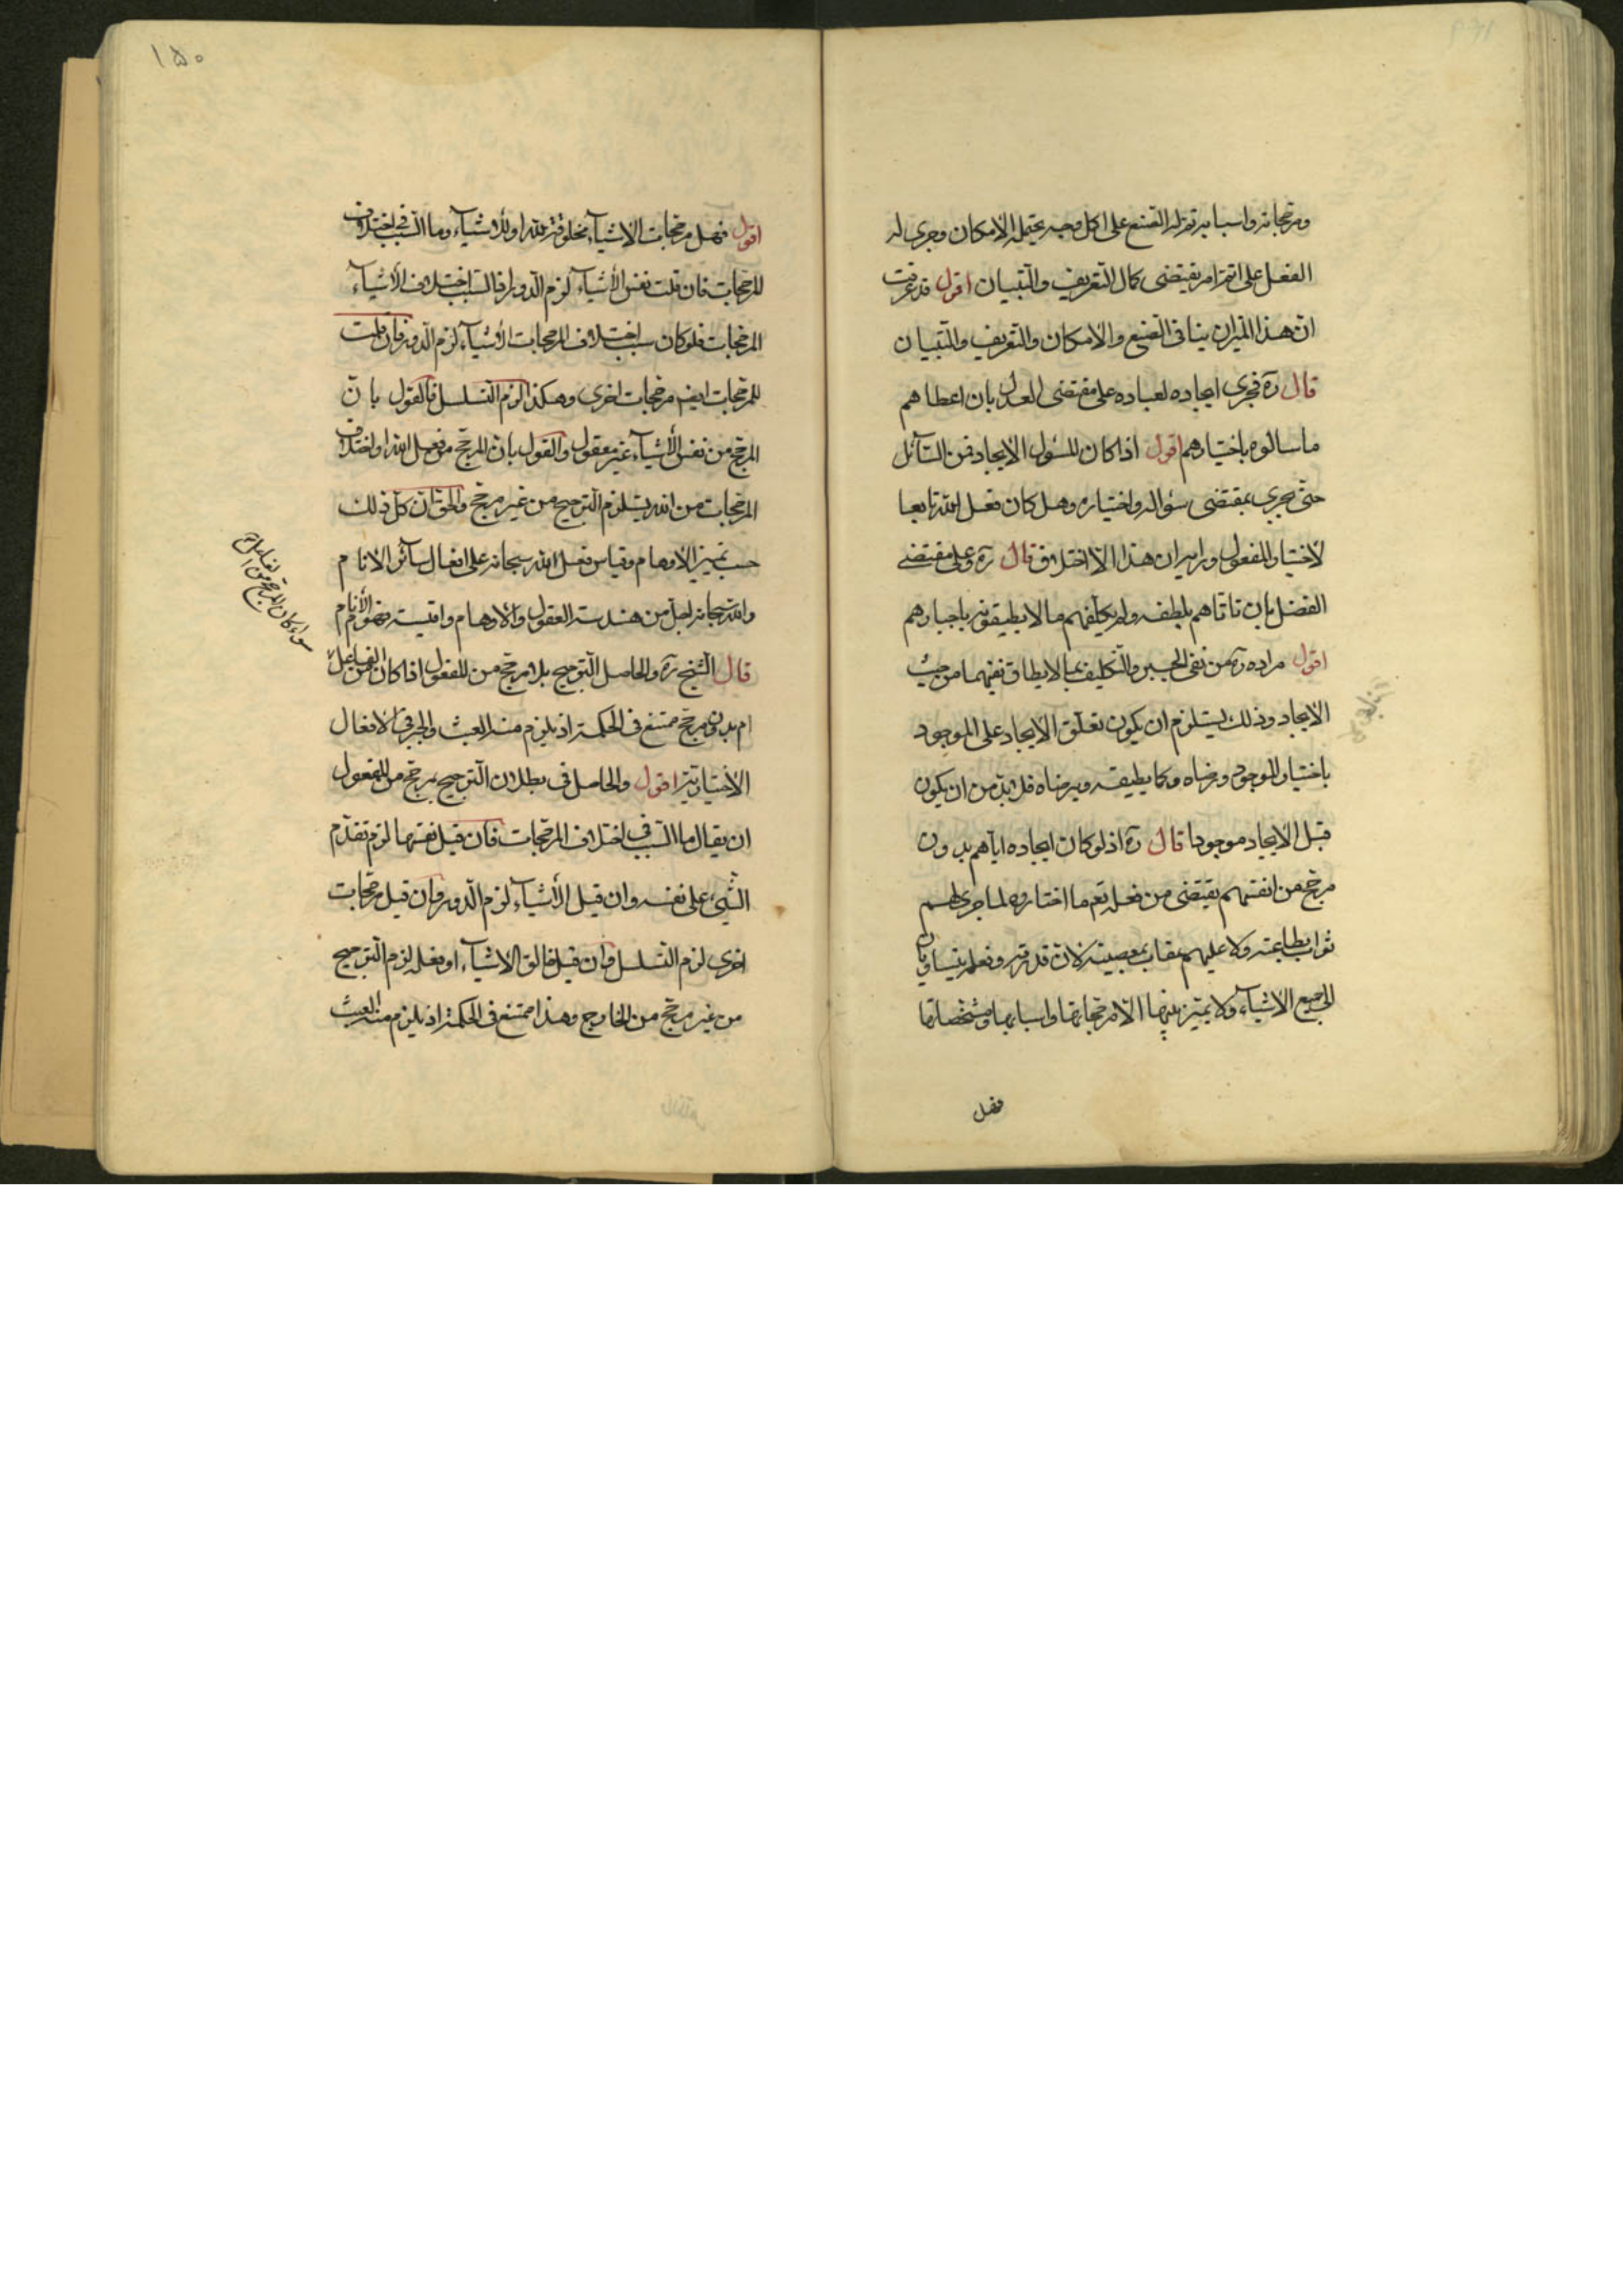 ومرجحاته واسبابه تم له الصنع على اكمل وجه يحتمله الامكان وجرى له
الفعل على اتم امر يقتضى كمال التعريف والتبيان اقول قد عرفت
ان هذا الميزان ينافى الصنع والامكان والتعريف والتبيان
قال ره فجرى ايجاده لعباده على مقتضى العدل بان اعطاهم
ما سالوه باختيارهم اقول اذا كان المسئول الايجاد فمن السآئل
حتى يجرى بمقتضى سؤاله واختياره وهل كان فعل الله تابعا
لأختيار المفعول ان هذا الا اختلاق قال ره وعلى مقتضى
الفضل بان تاتاهم بلطفه ولم يكلفهم ما لا يطيقونه باجبارهم
اقول مراده ره من نفى الجبر والتكليف بما لا يطاق نفيهما من حيث
الايجاد وذلك يستلزم ان يكون تعلق الايجاد على الموجود
باختيار الموجود ورضاه وكما يطيقه ويرضاه فلا بد من ان يكون
قبل الايجاد موجودا قال ره اذ لو كان ايجاده اياهم بدون
مرجح من انفسهم يقتضى من فعله تعم ما اختاروه لما جرى لهم
ثواب بطاعته ولا عليهم عقاب بمعصيته لان قدرته وفعله يتساويان
الى جميع الاشيآء ولا يتميز بينها الا مرجحاتها واسبابها ومشخصاتها
١٥٠
اقول فهل مرجحات الاشيآء مخلوقة لله او للاشيآء وما السبب فى اختلاف
المرجحات فان قلت نفس الأشيآء لزم الدور اذ السبب اختلاف الأشيآء
المرجحات فلو كان سبب اختلاف المرجحات الأشيآء لزم الدور فان قلت
للمرجحات ايضا مرجحات اخرى وهكذا لزم التسلسل فالقول بان
المرجح من نفس الأشيآء غير معقول والقول بان المرجح من فعل الله او اختلاف
المرجحات من الله يستلزم الترجيح من غير مرجح والحق ان كل ذلك
حسب تميز الاوهام وقياس فعل الله سبحانه على افعال سآئر الانام
والله سبحانه اجل من هندسة العقول والاوهام واقيسة فهوم الأنام
قال الشيخ ره والحاصل الترجيح بلا مرجح من المفعول اذا كان من الفاعل
ام بدون مرجح ممتنع فى الحكمة اذ يلزم منه العبث والجبر فى الافعال
الأختيارية اقول والحاصل فى بطلان الترجيح بمرجح من المفعول
ان يقال ما السبب فى اختلاف المرجحات فان قيل نفسها لزم تقدم
الشئ على نفسه وان قيل الأشيآء لزم الدور وان قيل مرجحات
اخرى لزم التسلسل وان قيل خالق الاشيآء او فعله لزم الترجيح
من غير مرجح من الخارج وهذا ممتنع فى الحكمة اذ يلزم منه العبث
سواء كان المرجح من